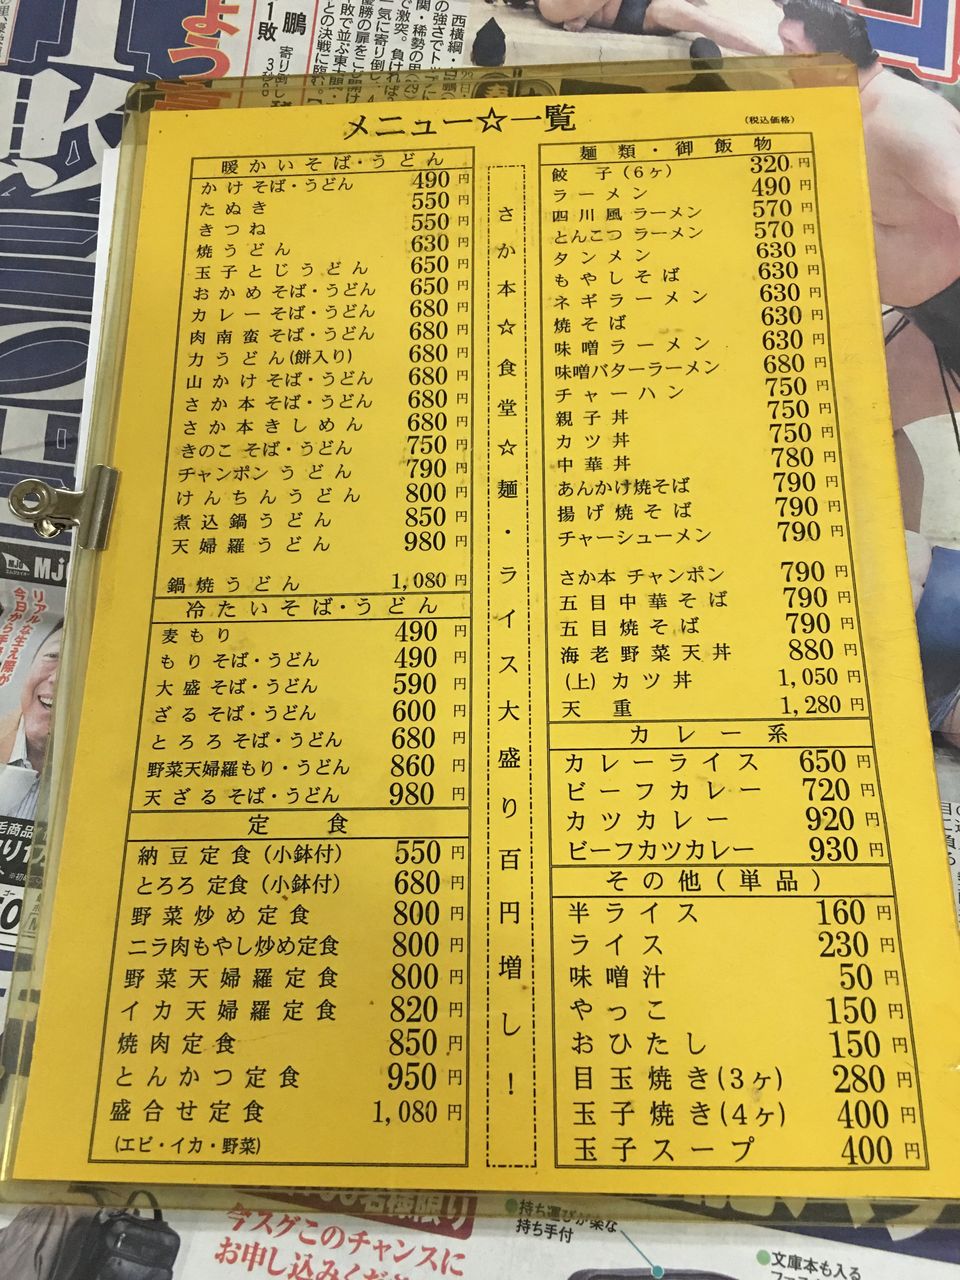 メニュー☆一覧
(税込価格)
暖かいそば・うどん
かけそば・うどん 490円
たぬき 550円
きつね 550円
焼うどん 630円
玉子とじうどん 650円
おかめそば・うどん 650円
カレーそば・うどん 680円
肉南蛮そば・うどん 680円
力うどん(餅入り) 680円
山かけそば・うどん 680円
さか本そば・うどん 680円
さか本きしめん 680円
きのこそば・うどん 750円
チャンポンうどん 790円
けんちんうどん 800円
煮込鍋うどん 850円
天婦羅うどん 980円
鍋焼うどん 1,080円
冷たいそば・うどん
麦もり 490円
もりそば・うどん 490円
大盛そば・うどん 590円
ざるそば・うどん 600円
とろろそば・うどん 680円
野菜天婦羅もり・うどん 860円
天ざるそば・うどん 980円
定食
納豆定食(小鉢付) 550円
とろろ定食(小鉢付) 680円
野菜炒め定食 800円
ニラ肉もやし炒め定食 800円
野菜天婦羅定食 800円
イカ天婦羅定食 820円
焼肉定食 850円
とんかつ定食 950円
盛合せ定食 1,080円
(エビ・イカ・野菜)
さか本☆食堂☆麺・ライス大盛り百円増し!
麺類・御飯物
餃子(6ヶ) 320円
ラーメン 490円
四川風ラーメン 570円
とんこつラーメン 570円
タンメン 630円
もやしそば 630円
ネギラーメン 630円
焼そば 630円
味噌ラーメン 630円
味噌バターラーメン 680円
チャーハン 750円
親子丼 750円
カツ丼 750円
中華丼 780円
あんかけ焼そば 790円
揚げ焼そば 790円
チャーシューメン 790円
さか本チャンポン 790円
五目中華そば 790円
五目焼そば 790円
海老野菜天丼 880円
(上)カツ丼 1,050円
天重 1,280円
カレー系
カレーライス 650円
ビーフカレー 720円
カツカレー 920円
ビーフカツカレー 930円
その他(単品)
半ライス 160円
ライス 230円
味噌汁 50円
やっこ 150円
おひたし 150円
目玉焼き(3ヶ) 280円
玉子焼き(4ヶ) 400円
玉子スープ 400円
今スグこのチャンスに
持ち運びが楽な
持ち手付
文庫本も入る